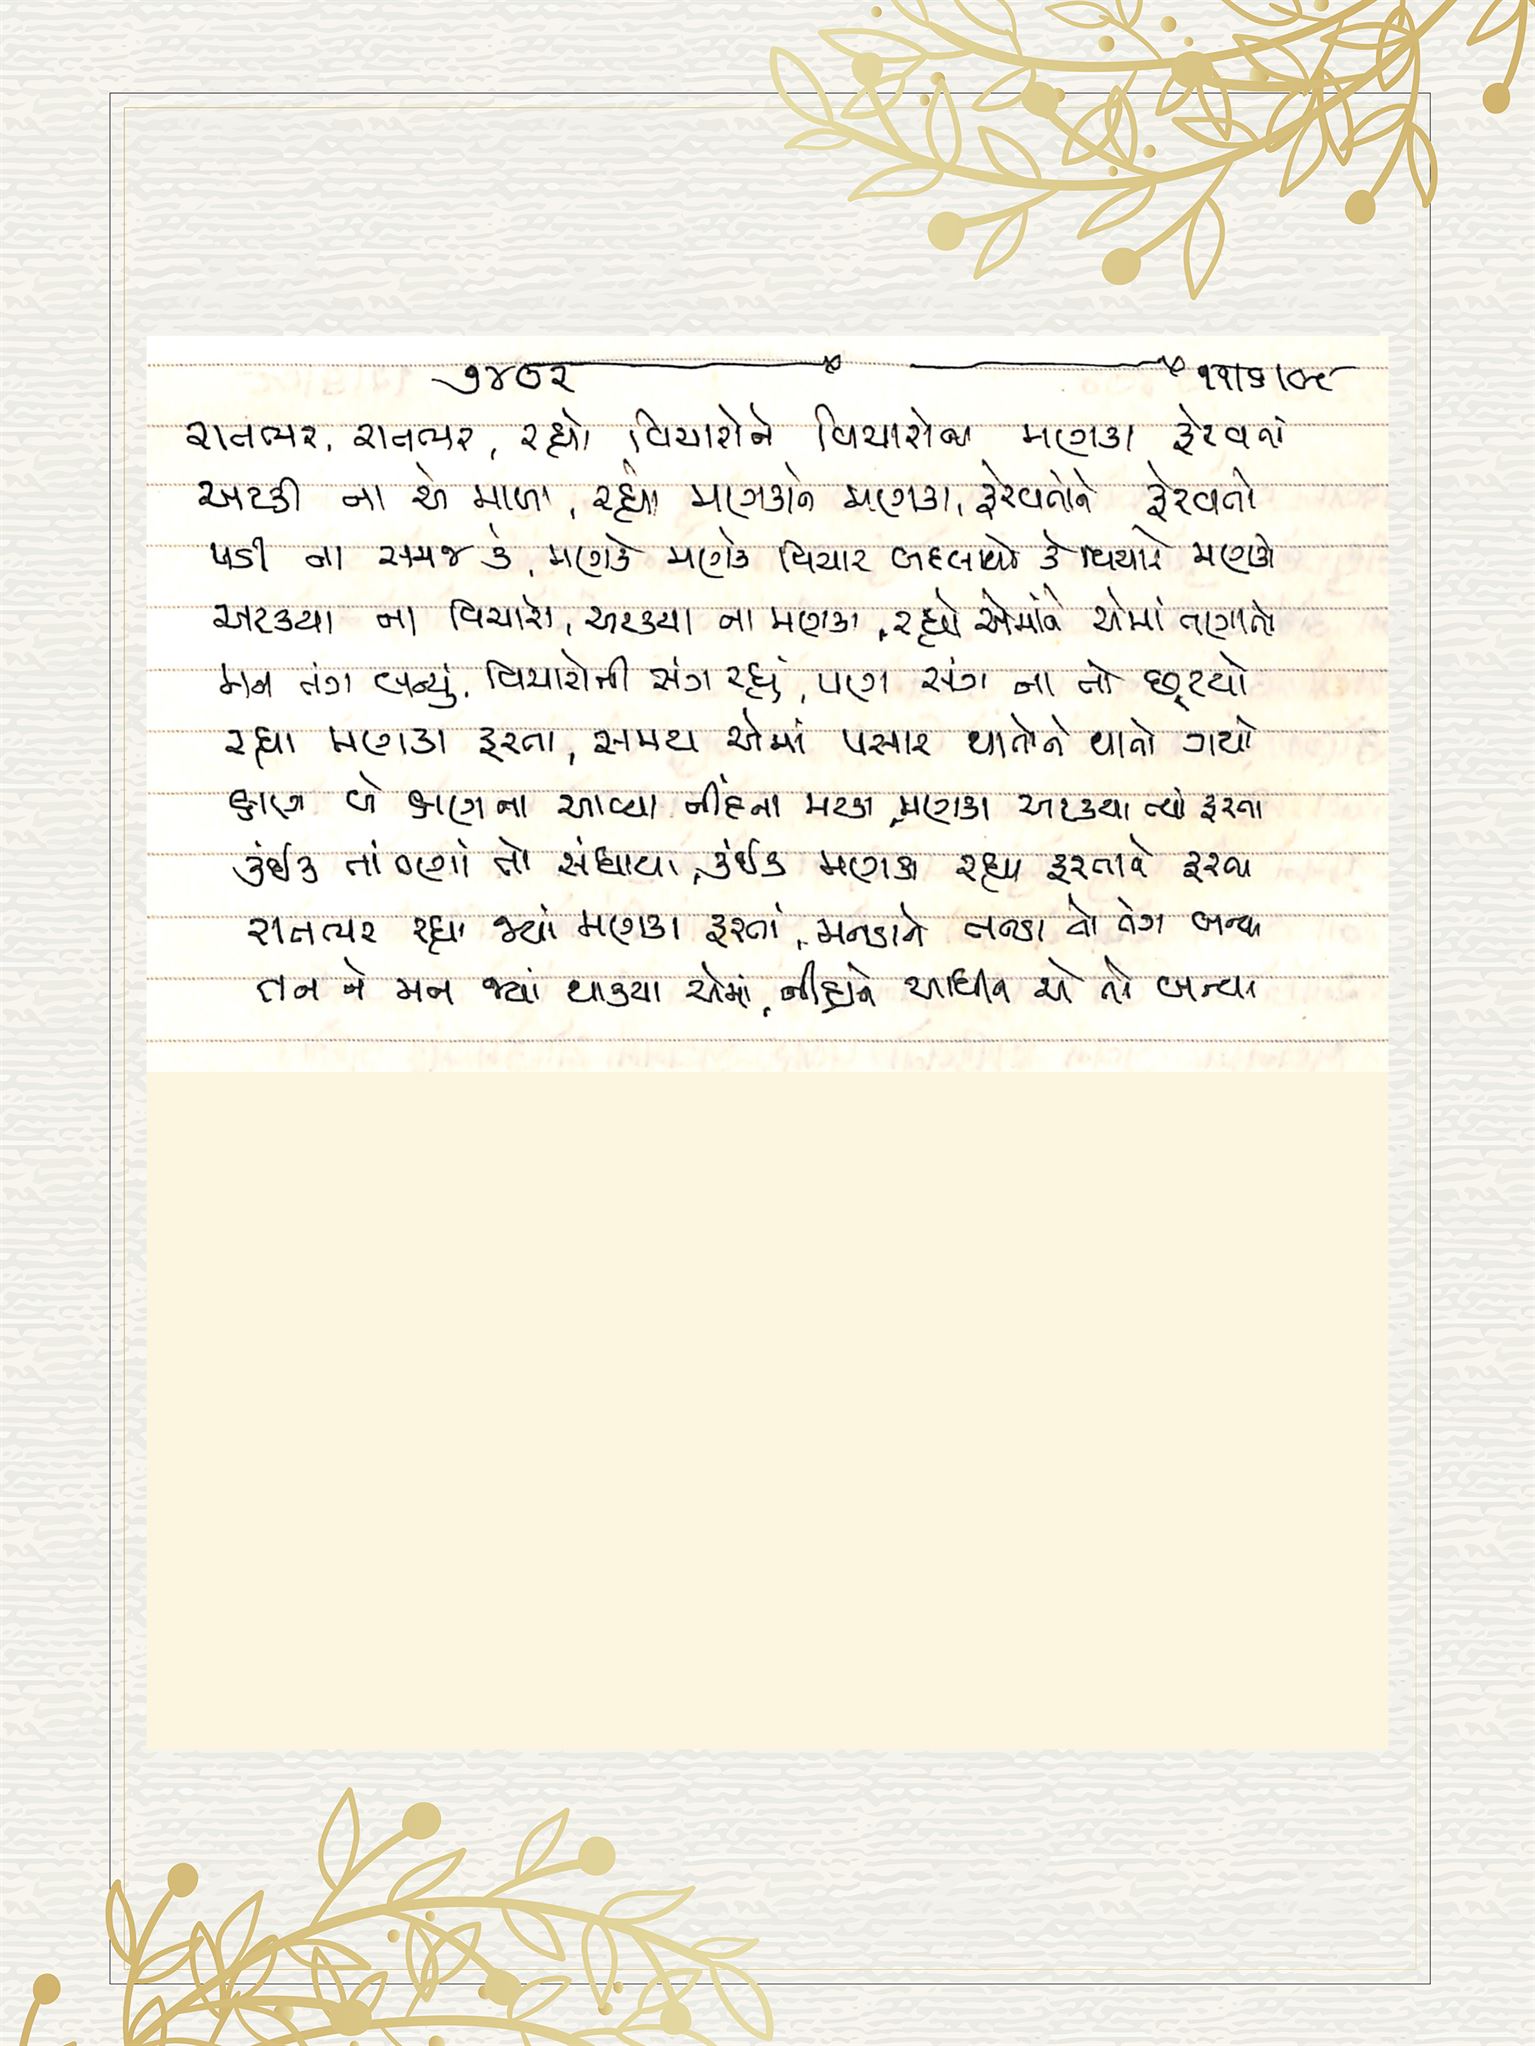 ૭૪૦૨ ૧૧/૬/૦૯
રાતભર, રાતભર, રહ્યો વિચારોને વિચારોના મણકા ફેરવતાં
અટકી ના એ માળા, રહ્યો મણકાને મણકા, ફેરવતોને ફેરવતો
પડી ના સમજ કે, મણકે મણકે વિચાર બદલાયો કે વિચારે મણકો
અટક્યા ના વિચારો, અટક્યા ના મણકા, રહ્યો એમાંને એમાં તણાતો
મન તંગ બન્યું, વિચારોની સંગ રહ્યું, પણ સંગ ના તો છૂટયો
રહ્યા મણકા ફરતા, સમય એમાં પસાર થાતોને થાતો ગયો
ક્ષણ બે ક્ષણના આવ્યા નીંદના મટકા, મણકા અટક્યા ત્યાં ફરતા
કંઈક તાંતણાં તો સંધાયા, કંઈક મણકા રહ્યા ફરતાને ફરતા
રાતભર રહ્યા જ્યાં મણકા ફરતાં, મનડાને તનડા તો તંગ બન્યા
તન ને મન જ્યાં થાક્યા એમાં, નીંદ્રાને આધીન એ તો બન્યા